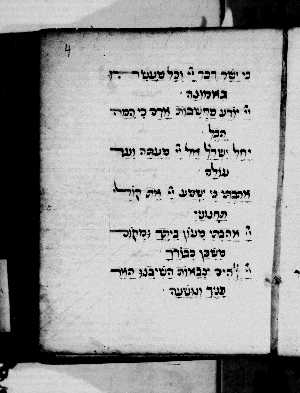 4
כי ישר דבר יי וכל מעשהו
באמונה
יי יודע מחשבות אדם כי המה
הבל
יחל ישראל אל יי מעתה ועד
עולם
אהבתי כי ישמע יי את קולי
תחנוני
יי אהבתי מעון ביתך ומקום
משכן כבודך
יי אלהים צבאות השיבנו האר
פניך ונושעה